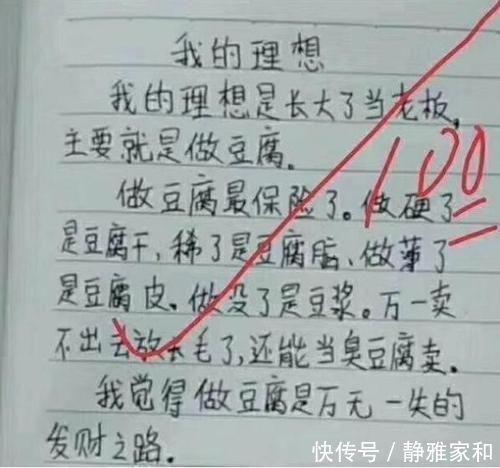 我的理想
我的理想是长大了当老板,
主要就是做豆腐.
做豆腐最保险了。做硬了
是豆腐干,稀了是豆腐脑、做薄了
是豆腐皮、做没了是豆浆。万一卖
不出去放长毛了,还能当臭豆腐卖.
我觉得做豆腐是万无一失的
发财之路.
100
快传号/静雅家和